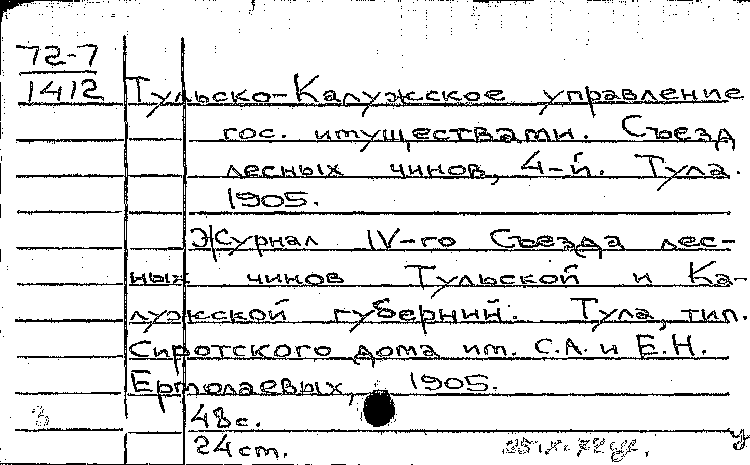 72-7
1412 Тульско-Калужское управление
гос. имуществами. Съезд
лесных чинов, 4-й. Тула.
1905.
Журнал IV-го Съезда лес-
ных чинов Тульской и Ка-
лужской губерний. Тула, тип.
Сиротского дома им. С.А. и Е.Н.
Ермолаевых, 1905.
48 с.
24 см.